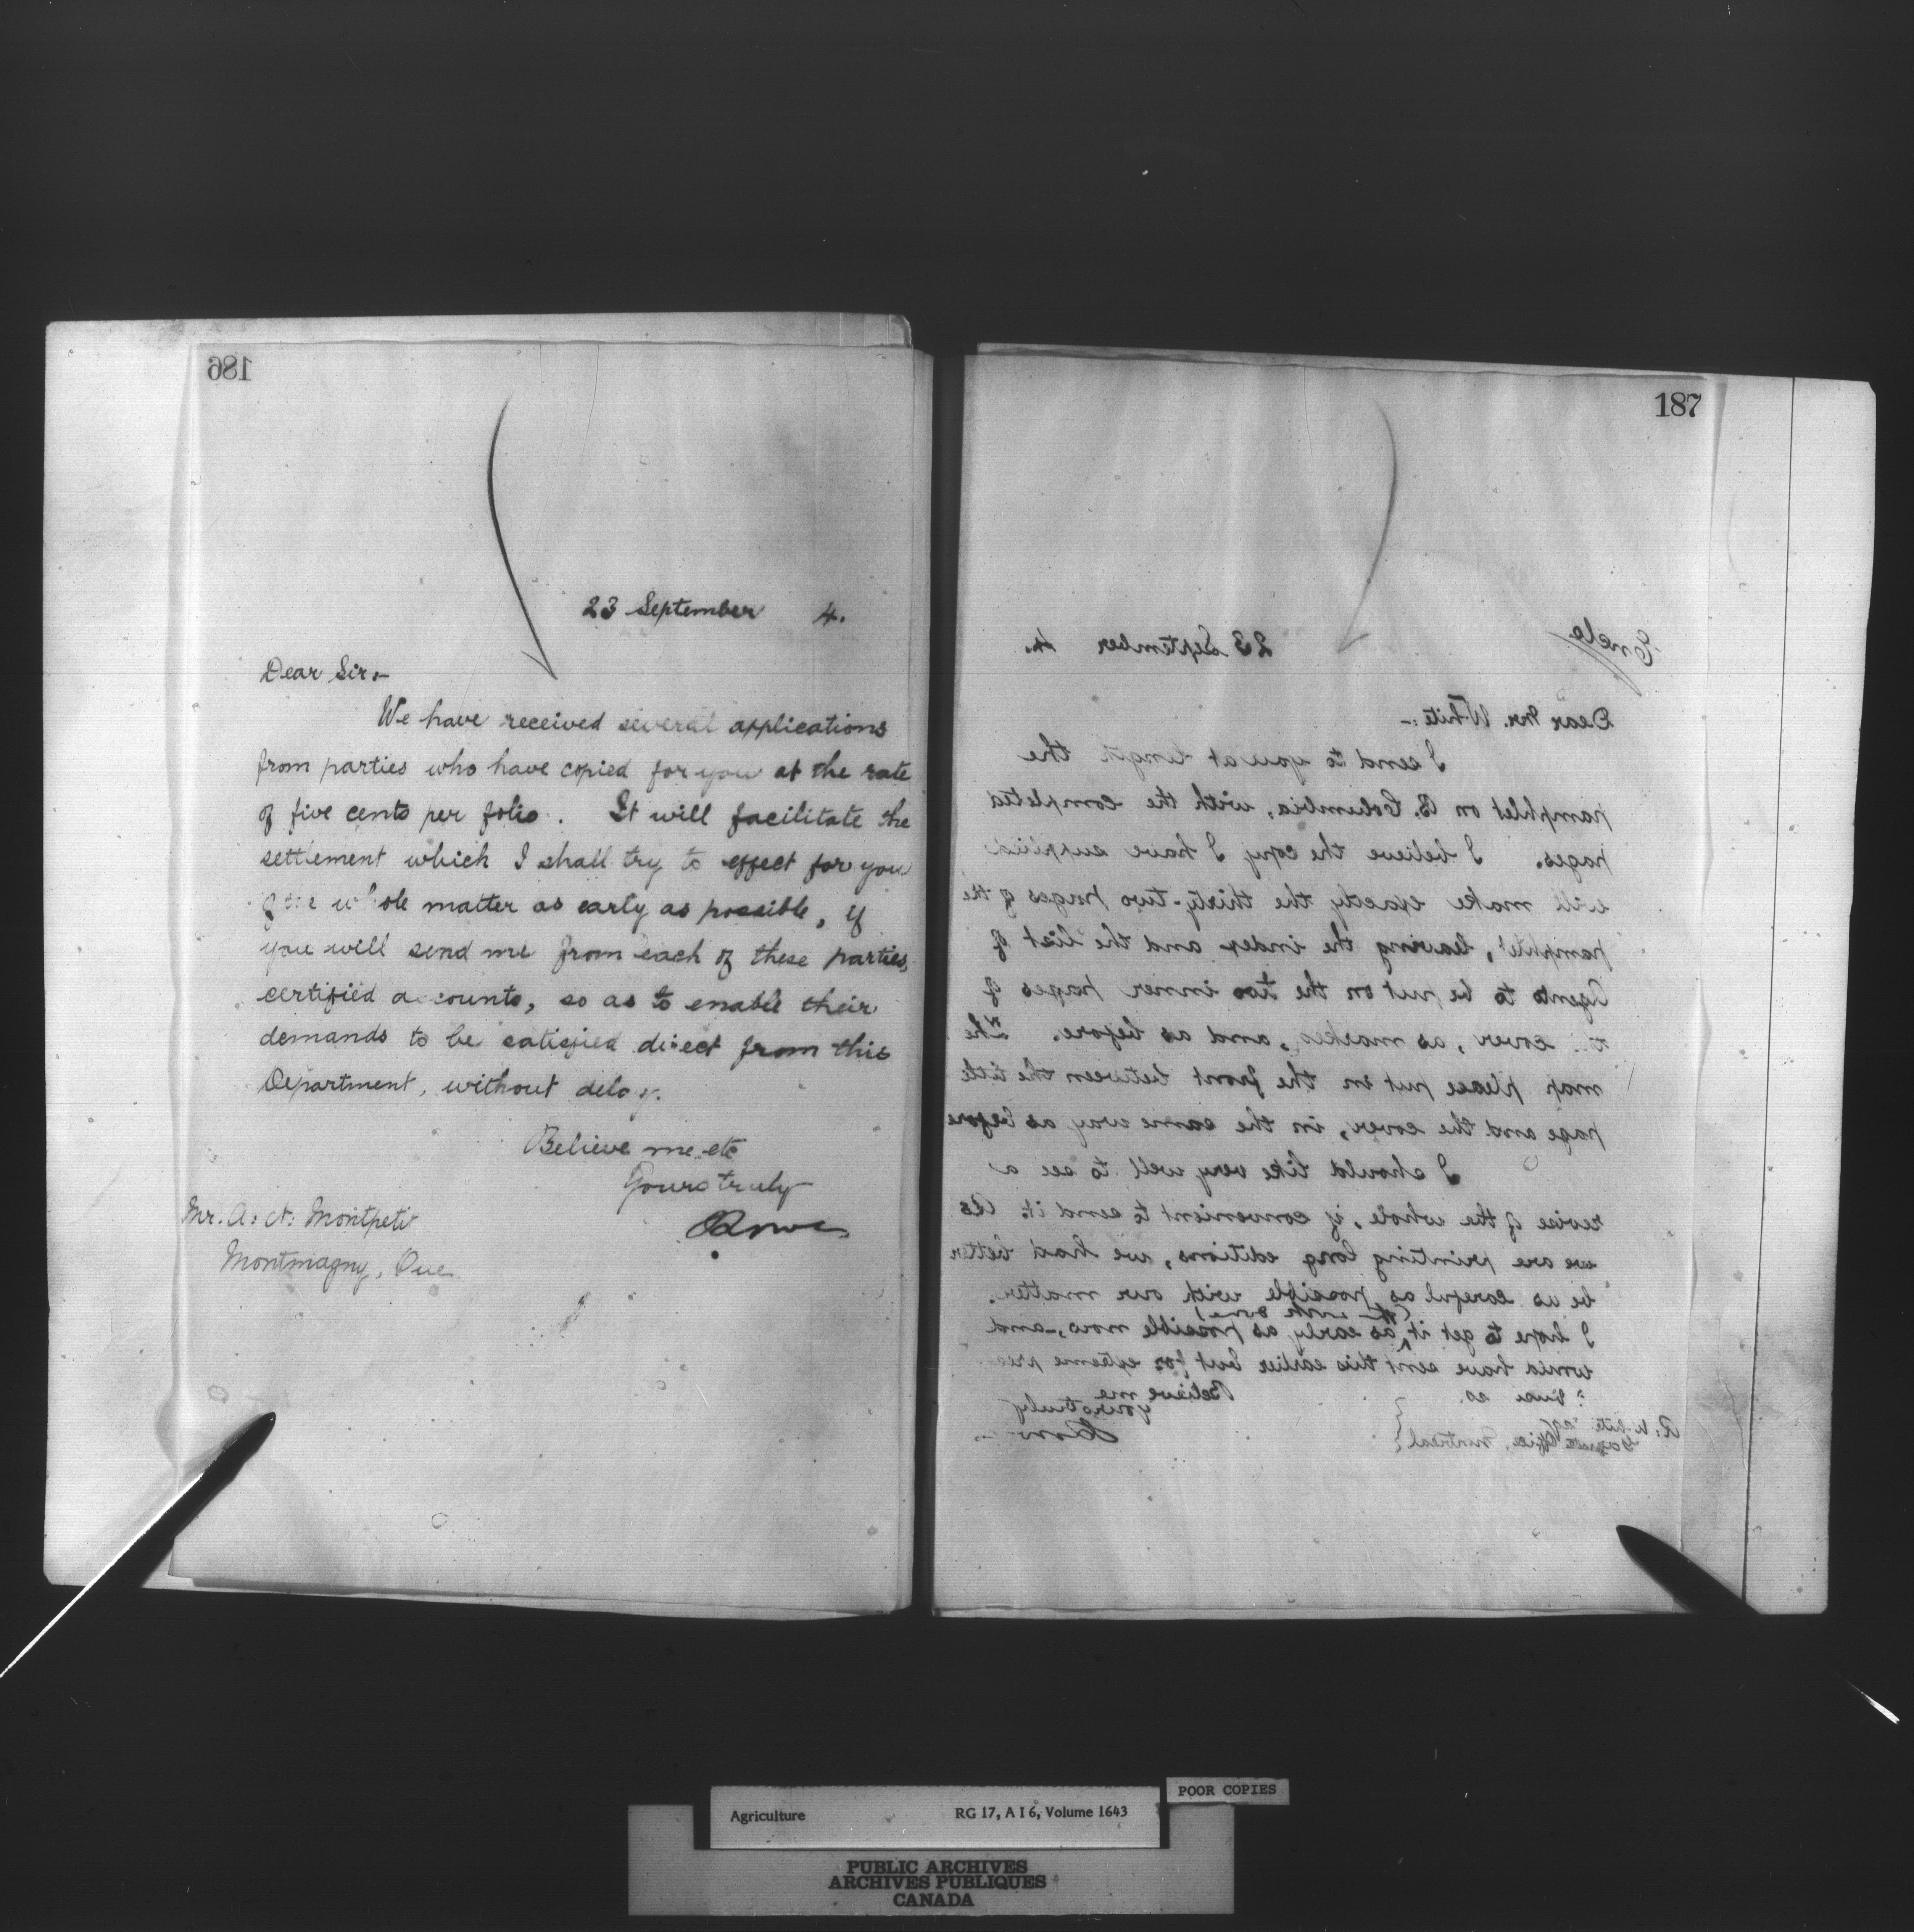 186
23 September 4.
Dear Sir:-
We have received several applications
from parties who have copied for you at the rate
of five cents per folio. It will facilitate the
settlement which I shall try to effect for you
of the whole matter as early as possible, if
you will send me from each of these parties,
certified accounts, so as to enable their
demands to be satisfied direct from this
Department, without delay.
Believe me etc
Yours truly
Mr. A: N: Montpetit
Montmagny, Que
187
Encls
23 September 4.
Dear Mr. White:-
I send to you at length the
pamphlet on B. Columbia, with the completed
pages. I believe the copy I have supplied
will make exactly the thirty-two pages of the
pamphlet, leaving the index and the list of
Agents to be put on the two inner pages of
cover, as marked, and, as before. The
map please put in the front between the title
page and the cover, in the same way as before
I should like very well to see a
revise of the whole, if convenient to send it. As
we are printing long editions, we had better
be as careful as possible with our matter.
I hope to get it as early as possible now, and
would have sent this earlier but for extreme
Believe me
yours truly
R: White Esq
Gazette Office, Montreal
POOR COPIES
Agriculture RG 17, A I 6, Volume 1643
PUBLIC ARCHIVES
ARCHIVES PUBLIQUES
CANADA